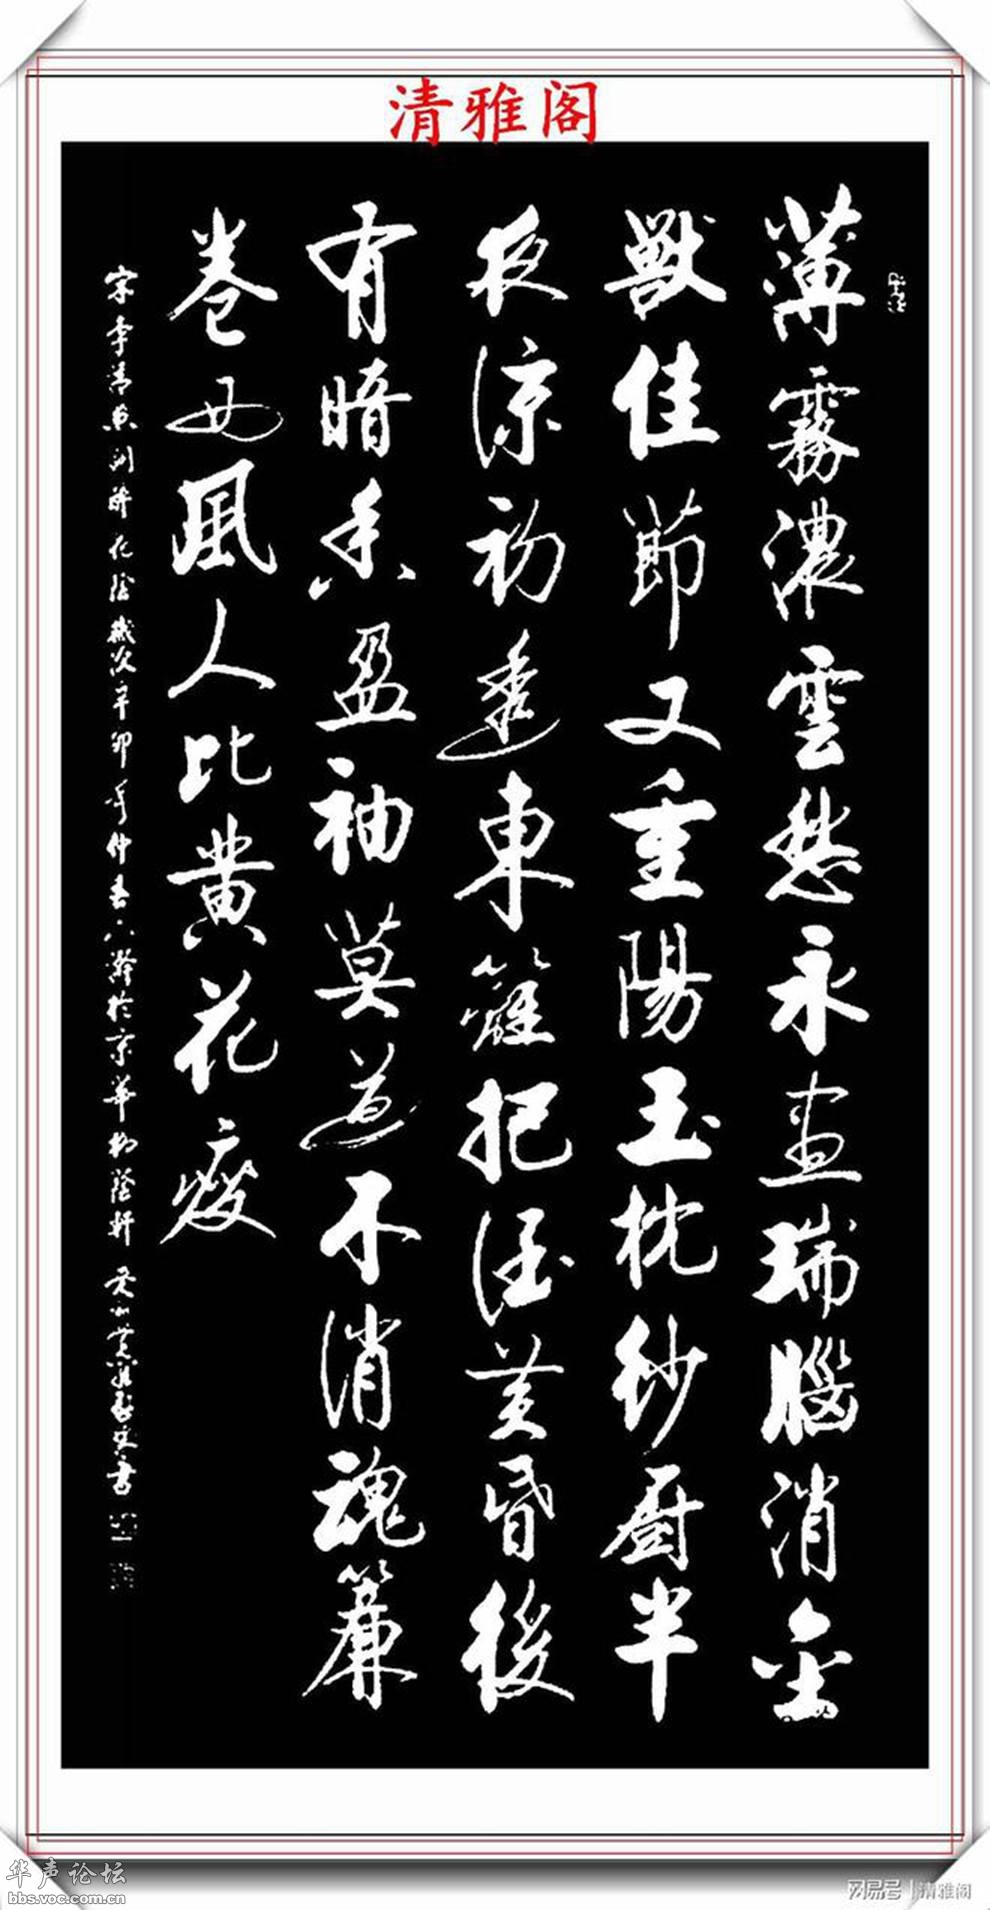 清雅阁
薄霧濃雲愁永晝瑞腦消金
獸佳節又重陽玉枕紗厨半
夜涼初透東籬把酒黄昏後
有暗香盈袖莫道不消魂簾
卷西風人比黄花瘦
宋李清照詞醉花陰歲次辛卯年仲春於京華柳蔭軒書
华声论坛
bbs.voc.com.cn
网易号|清雅阁